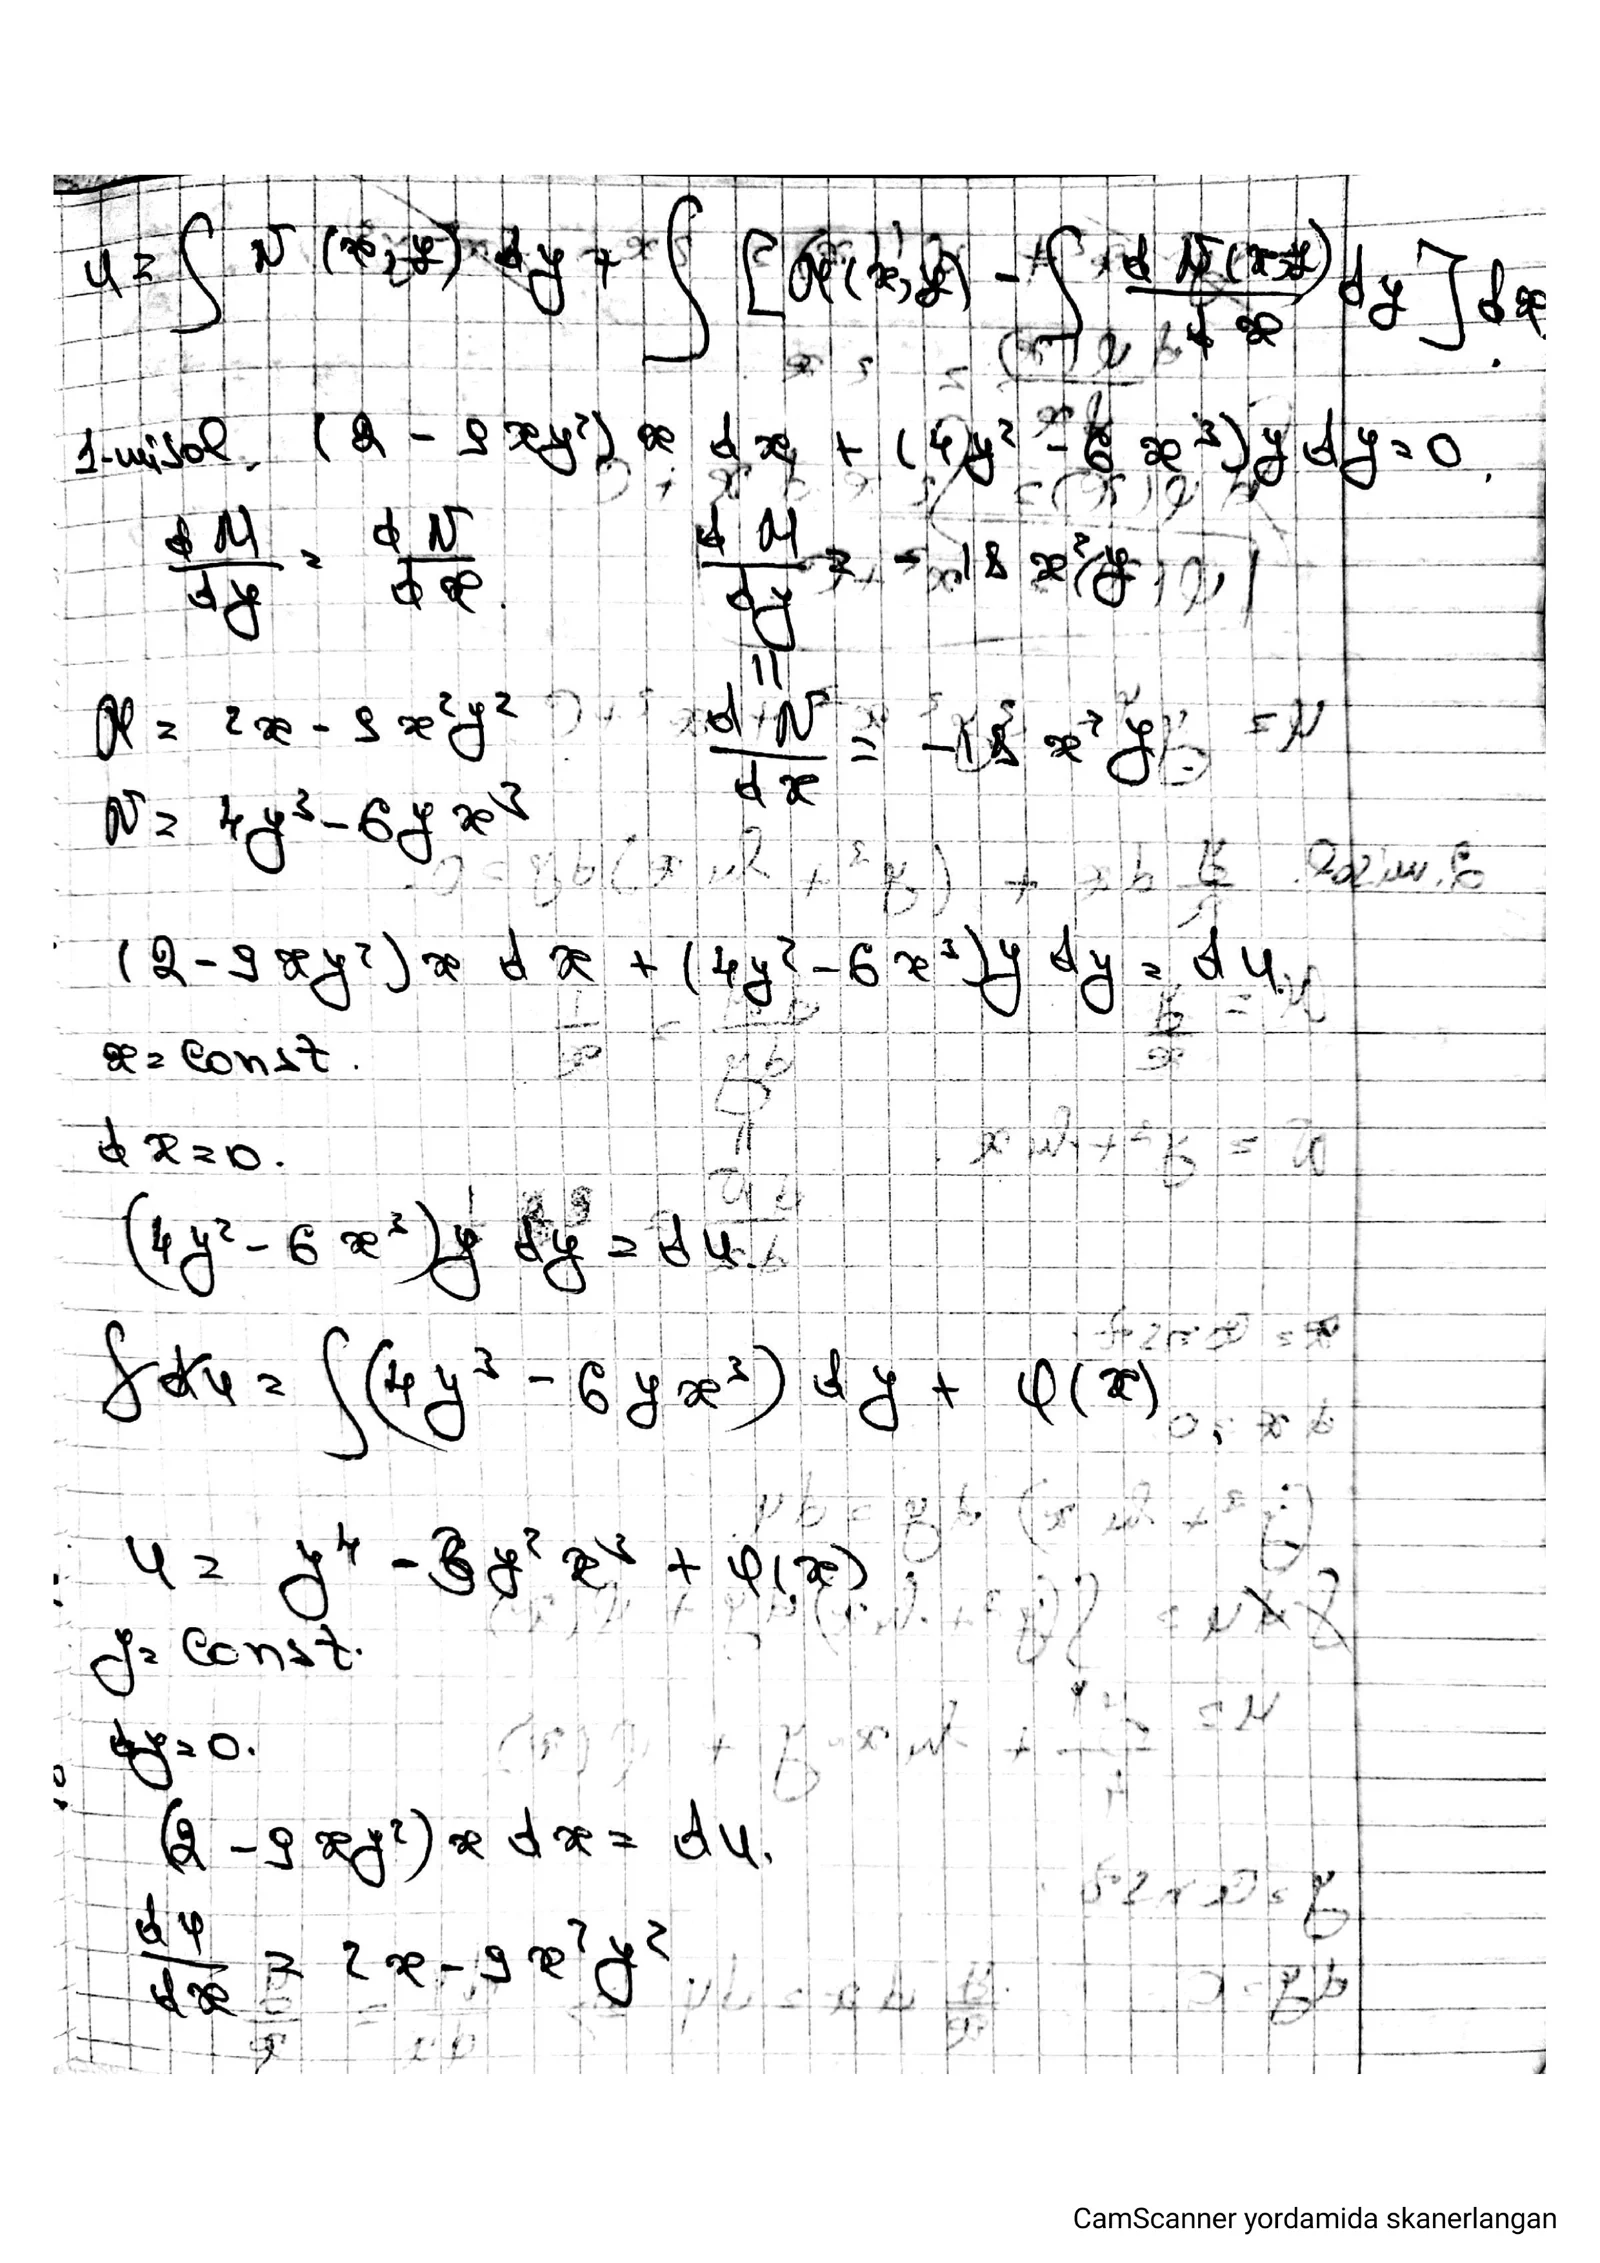 u = ∫ N(x, y) dy + ∫ [M(x, y) - ∫ dN(x,y)/dx dy] dx.
1-misol. (2 - 9xy²) x dx + (4y² - 6x³) y dy = 0.
dM/dy = dN/dx. dM/dy = -18x²y
||
M = 2x - 9x²y² dN/dx = -18x²y
N = 4y³ - 6yx³
(2 - 9xy²) x dx + (4y² - 6x³) y dy = du.
x = const.
dx = 0.
(4y² - 6x³) y dy = du.
∫ du = ∫ (4y³ - 6yx³) dy + φ(x)
u = y⁴ - 3y²x³ + φ(x)
y = const.
dy = 0.
(2 - 9xy²) x dx = du.
du/dx = 2x - 9x²y².
CamScanner yordamida skanerlangan